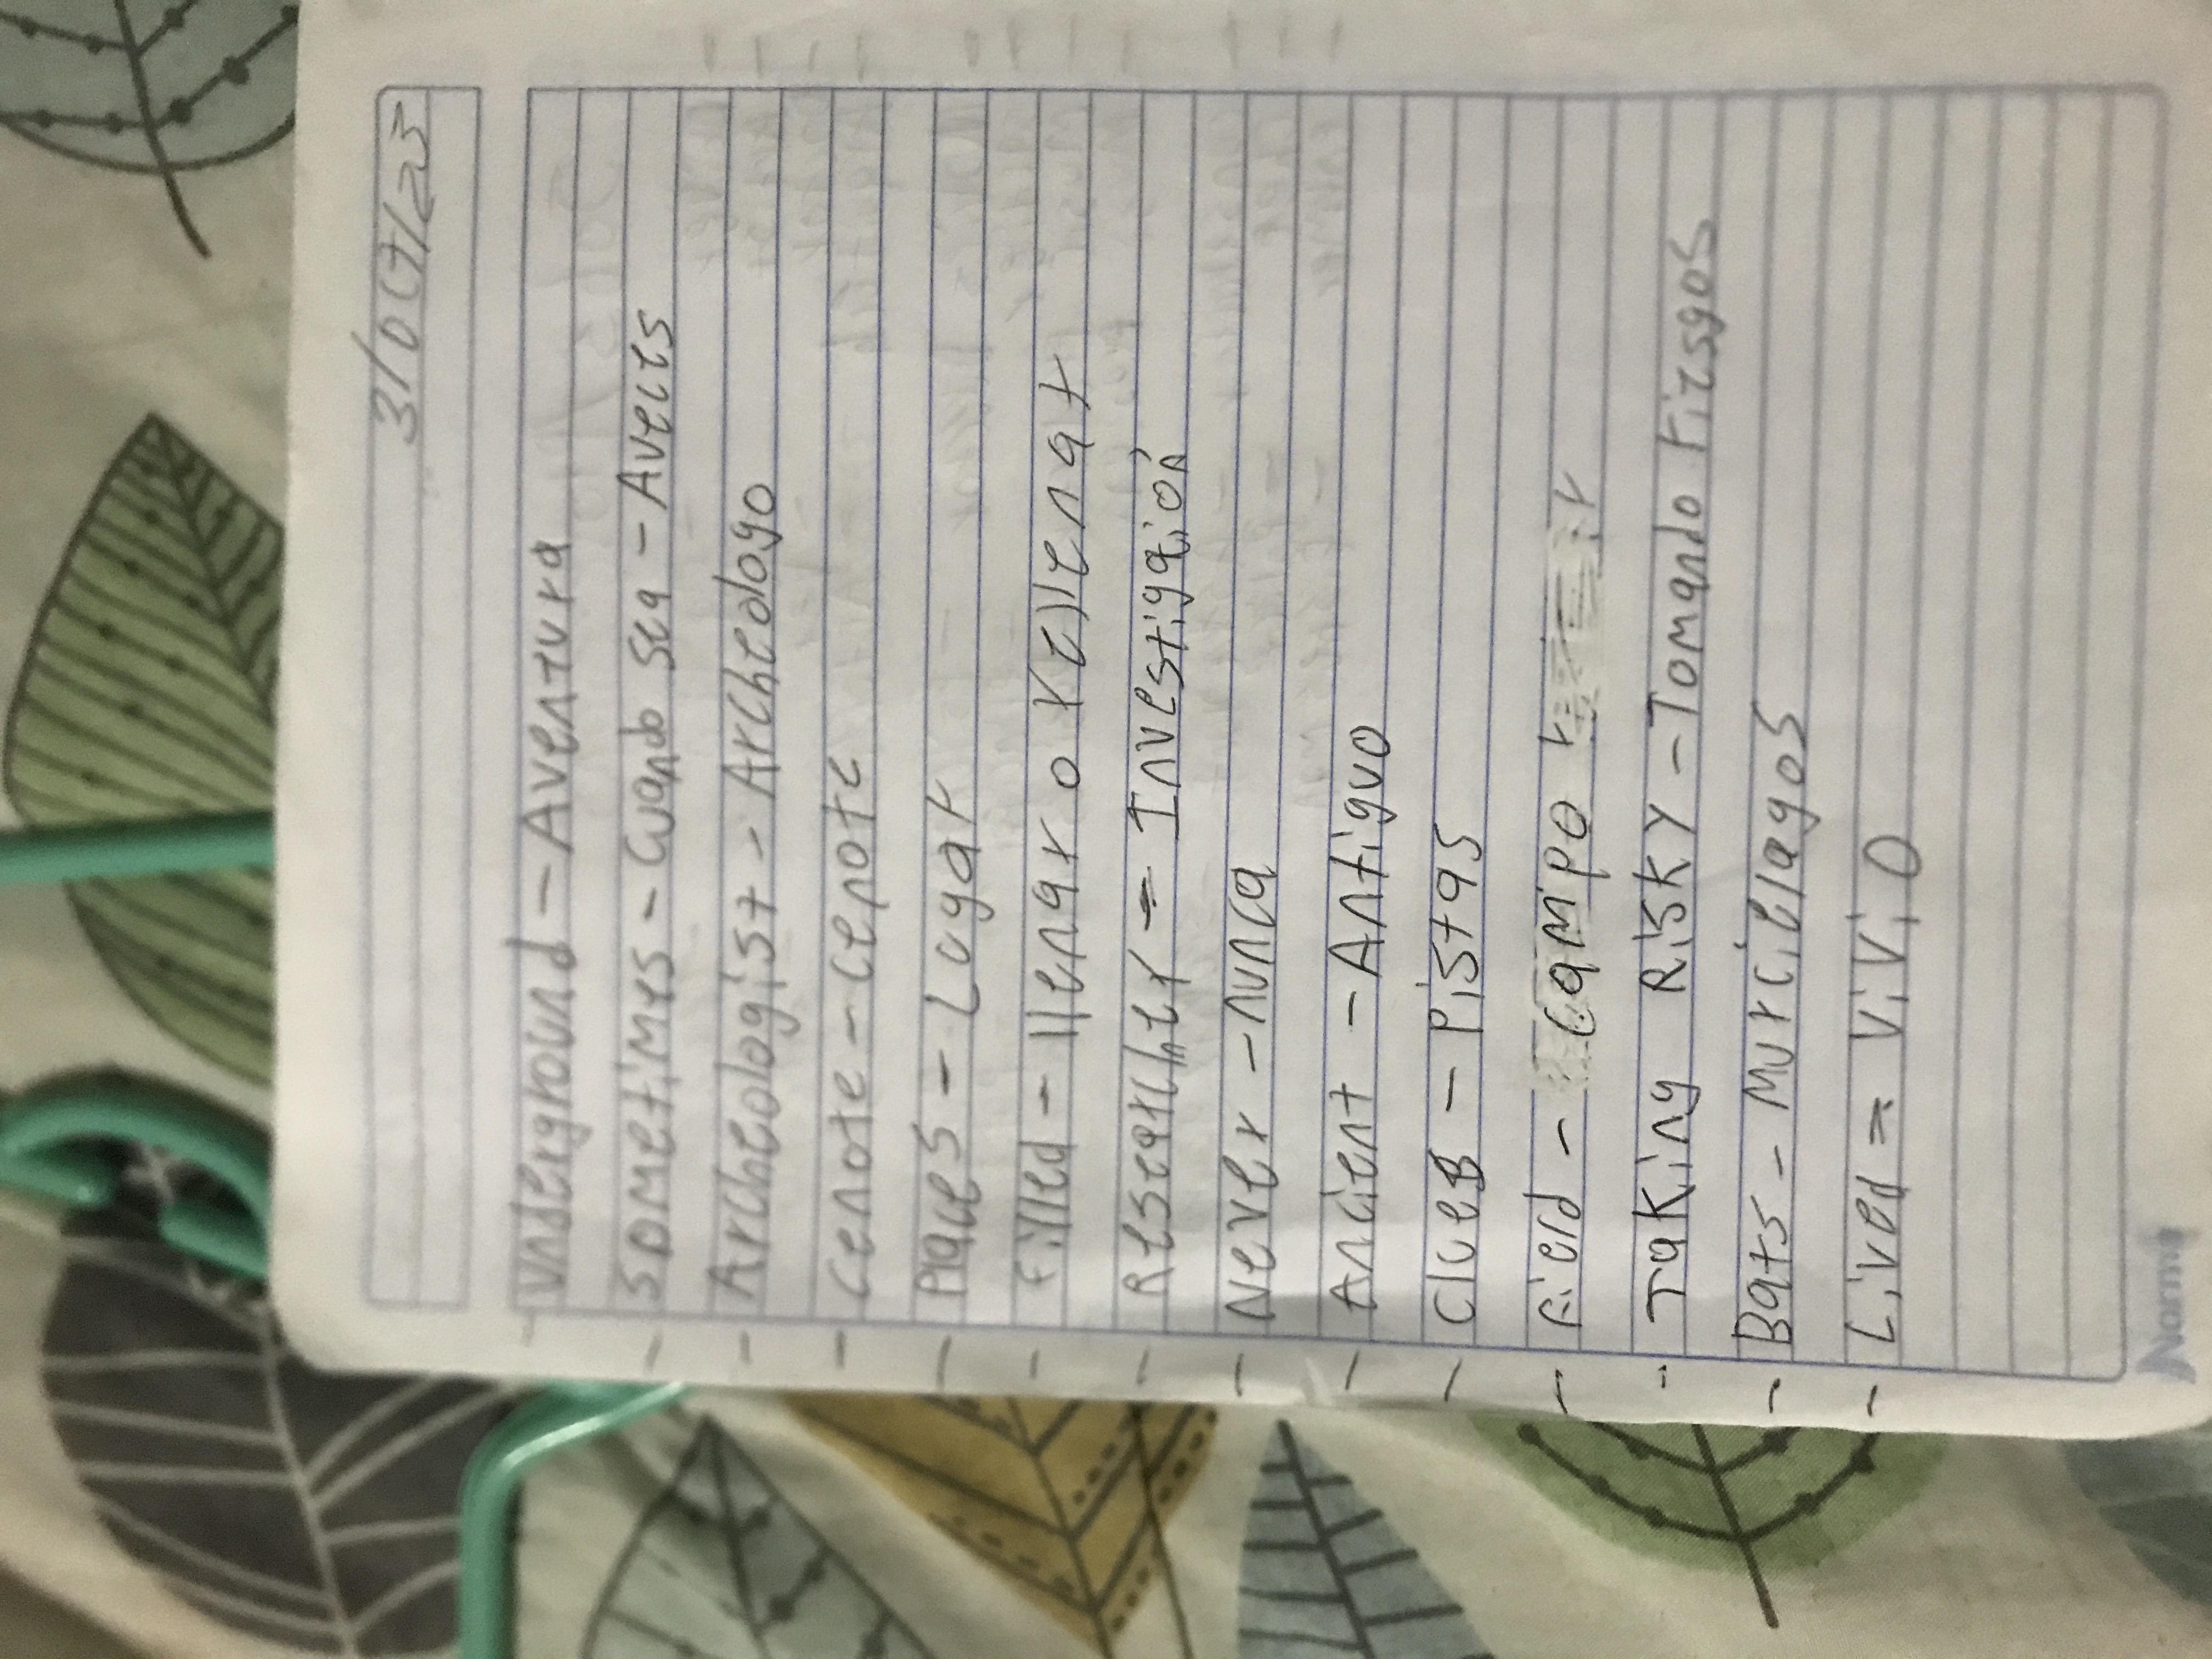 31/Oct/23
- Underground - Aventura
- Sometimes - Cuando sea - Aveces
- Archeologist - Archeologo
- Cenote - Cenote
- Places - Lugar
- Filled - llenar o Rellenar
- Researcher - Investigación
- Never - nunca
- Ancient - Antiguo
- Clues - Pistas
- Field - campo
- Taking Risky - Tomando Riesgos
- Bats - Murcielagos
- Lived = ViVio
Norma